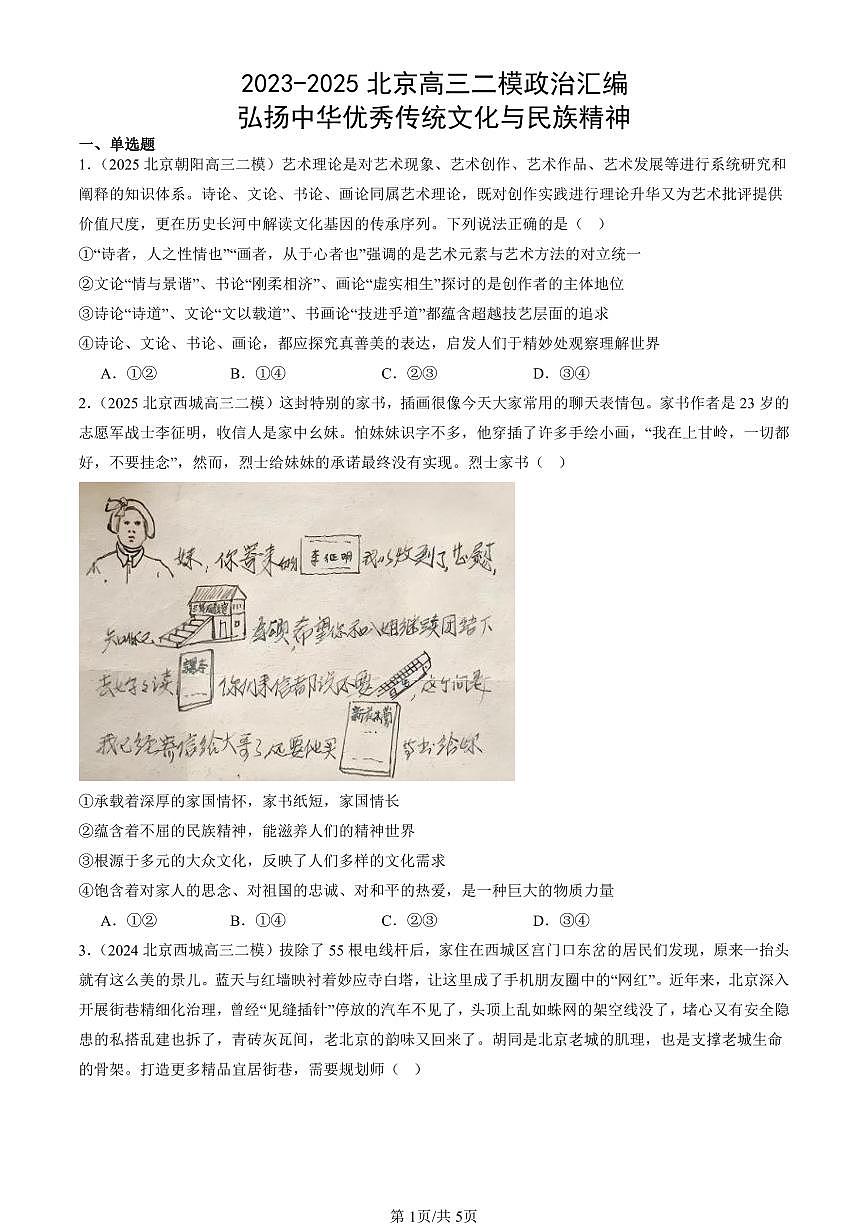 2023-2025 北京高三二模政治汇编
弘扬中华优秀传统文化与民族精神
一、单选题
1.（2025 北京朝阳高三二模）艺术理论是对艺术现象、艺术创作、艺术作品、艺术发展等进行系统研究和
阐释的知识体系。诗论、文论、书论、画论同属艺术理论，既对创作实践进行理论升华又为艺术批评提供
价值尺度，更在历史长河中解读文化基因的传承序列。下列说法正确的是（　）
①“诗者，人之性情也”“画者，从于心者也”强调的是艺术元素与艺术方法的对立统一
②文论“情与景谐”、书论“刚柔相济”、画论“虚实相生”探讨的是创作者的主体地位
③诗论“诗道”、文论“文以载道”、书画论“技进乎道”都蕴含超越技艺层面的追求
④诗论、文论、书论、画论，都应探究真善美的表达，启发人们于精妙处观察理解世界
A．①② B．①④ C．②③ D．③④
2.（2025 北京西城高三二模）这封特别的家书，插画很像今天大家常用的聊天表情包。家书作者是 23 岁的
志愿军战士李征明，收信人是家中幺妹。怕妹妹识字不多，他穿插了许多手绘小画，“我在上甘岭，一切都
好，不要挂念”，然而，烈士给妹妹的承诺最终没有实现。烈士家书（　）
妹，你寄来的 李征明 我以收到了，甚慰，
知你已 高小 希望你和八姐继续团结下
去好好读 课本 你们来信都说不要，这个问题
我已经寄信给大哥了，他要他买 新花木兰 等书给你
①承载着深厚的家国情怀，家书纸短，家国情长
②蕴含着不屈的民族精神，能滋养人们的精神世界
③根源于多元的大众文化，反映了人们多样的文化需求
④饱含着对家人的思念、对祖国的忠诚、对和平的热爱，是一种巨大的物质力量
A．①② B．①④ C．②③ D．③④
3.（2024 北京西城高三二模）拔除了 55 根电线杆后，家住在西城区宫门口东岔的居民们发现，原来一抬头
就有这么美的景儿。蓝天与红墙映衬着妙应寺白塔，让这里成了手机朋友圈中的“网红”。近年来，北京深入
开展街巷精细化治理，曾经“见缝插针”停放的汽车不见了，头顶上乱如蛛网的架空线没了，堵心又有安全隐
患的私搭乱建也拆了，青砖灰瓦间，老北京的韵味又回来了。胡同是北京老城的肌理，也是支撑老城生命
的骨架。打造更多精品宜居街巷，需要规划师（　）
第 1页/共 5页